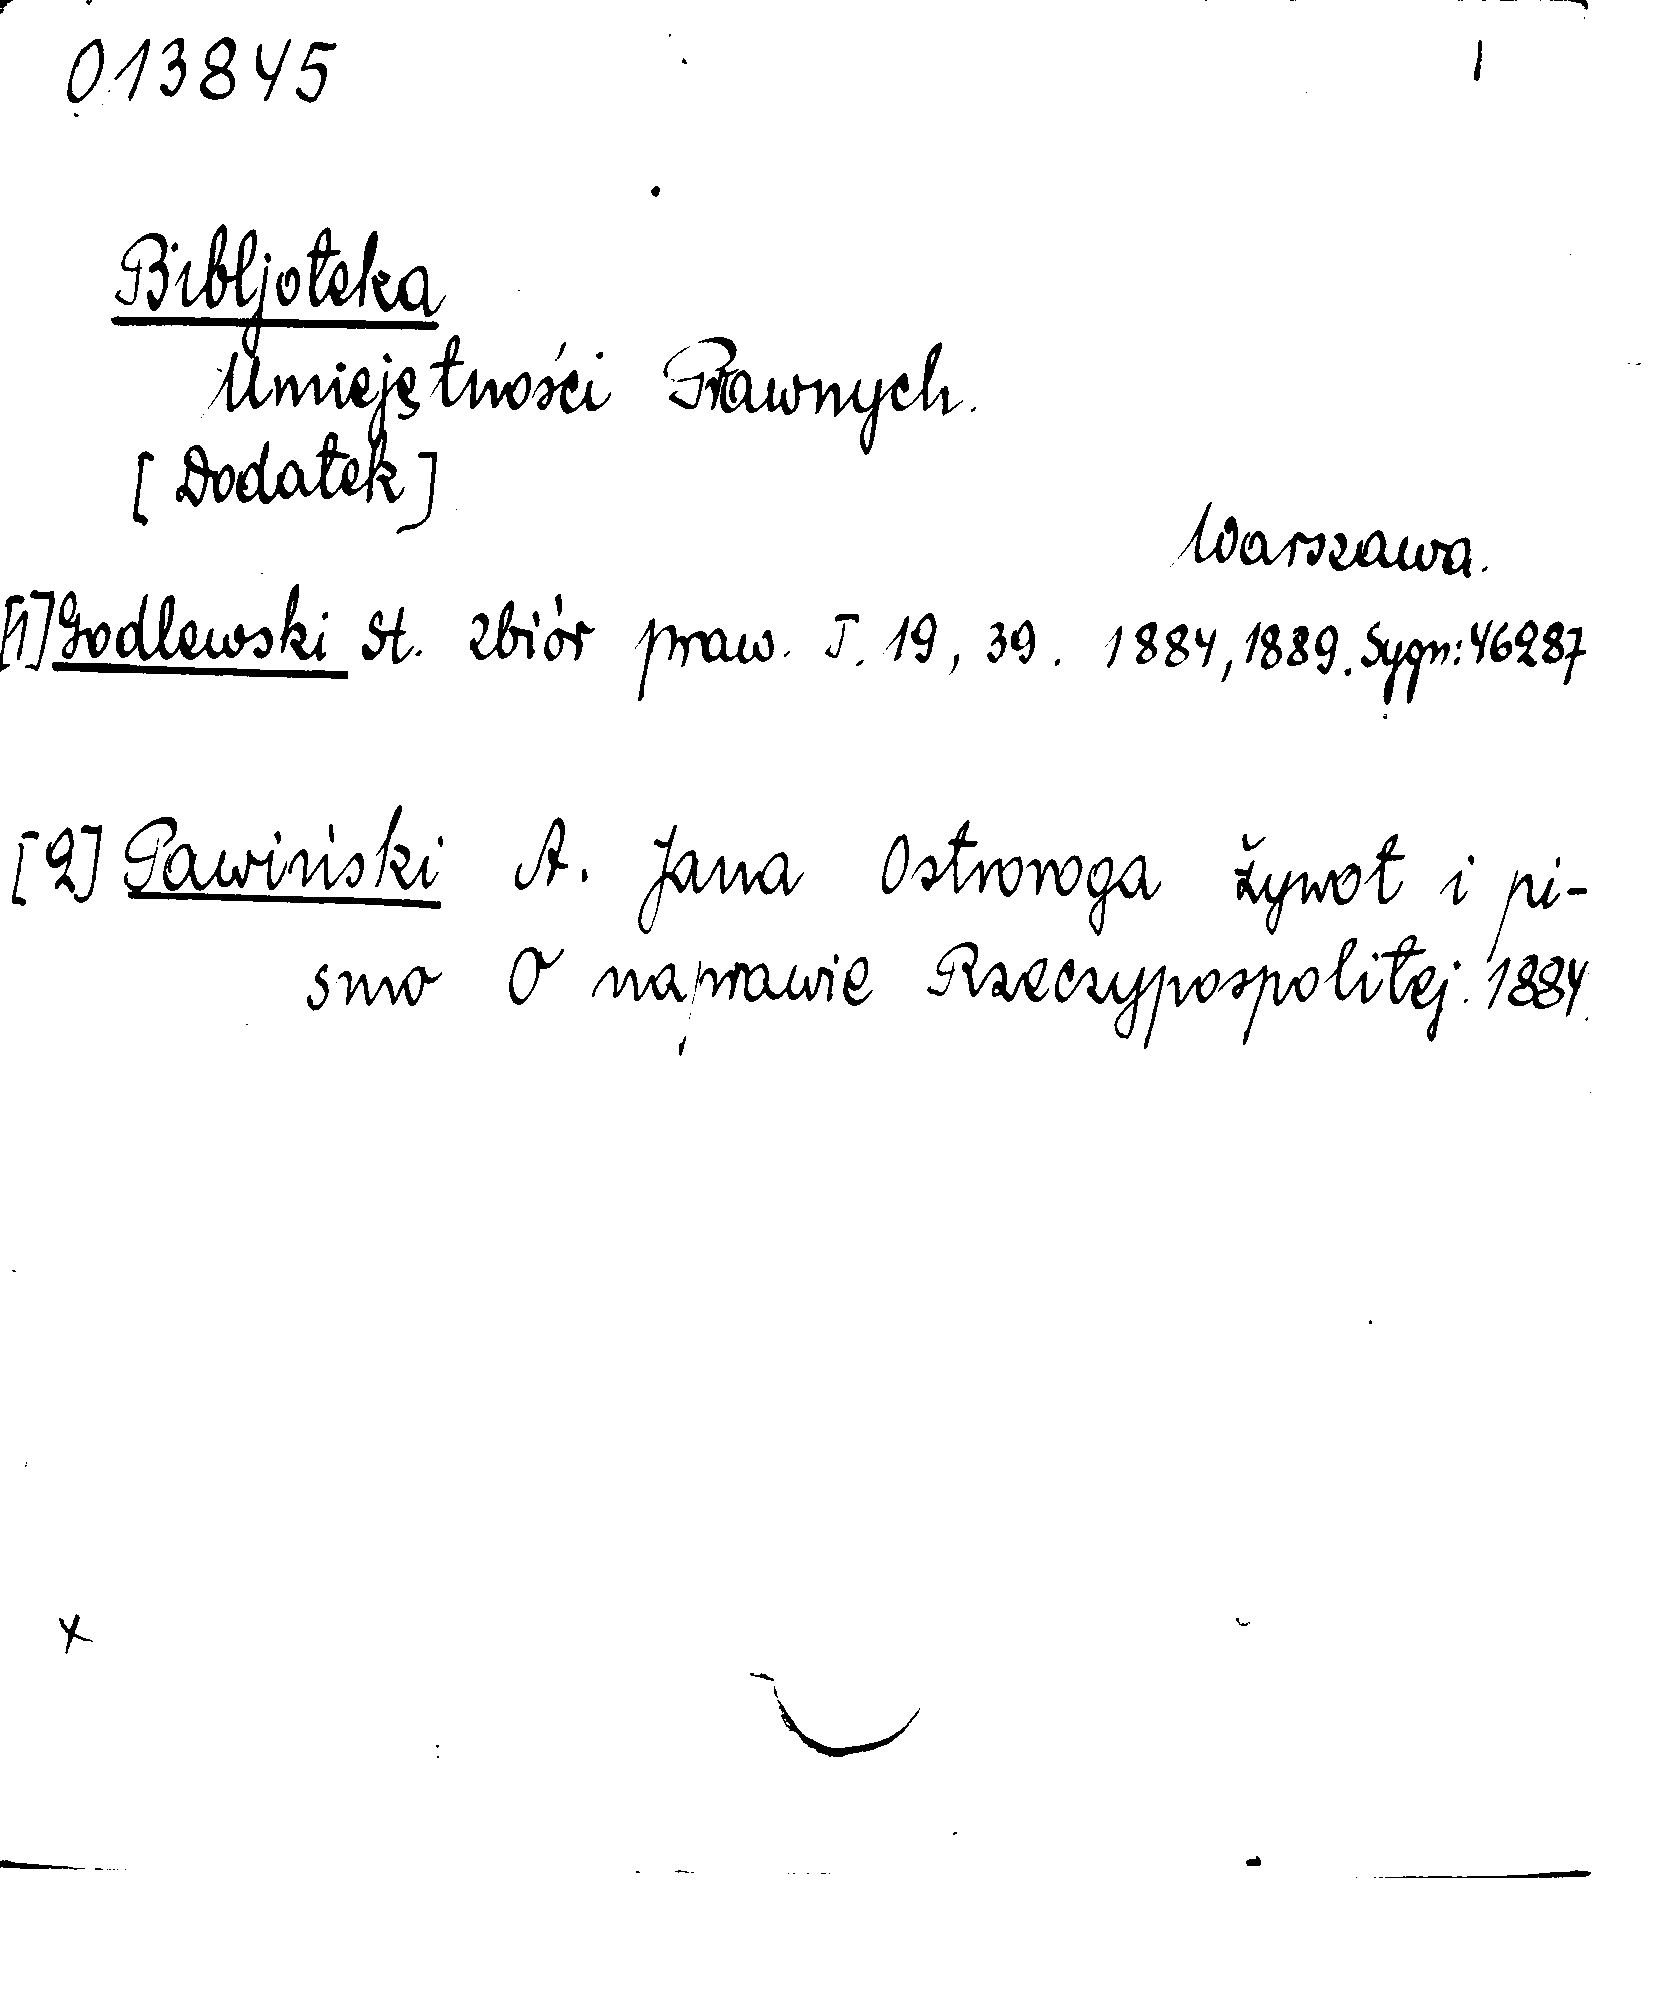 013845 1
Bibljoteka
Umiejętności Prawnych.
[Dodatek]
Warszawa.
[1] Godlewski St. Zbiór praw. T. 19, 39. 1884, 1889. Sygn: 46287
[2] Pawiński A. Jana Ostroroga żywot i pi-
smo O naprawie Rzeczypospolitej. 1884.
x